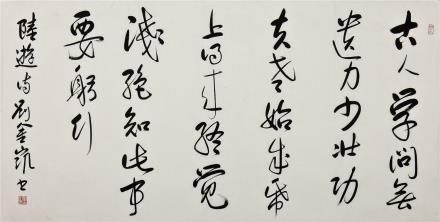 古人学问無
遗力少壮功
夫老始成纸
上得来终觉
浅绝知此事
要躬行
陸遊诗刘金凯书